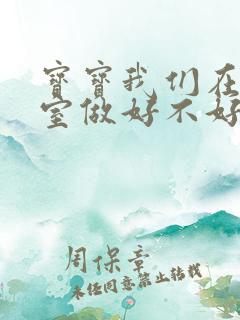 宝宝我们在
室做好不好
周保章
未经同意禁止转载